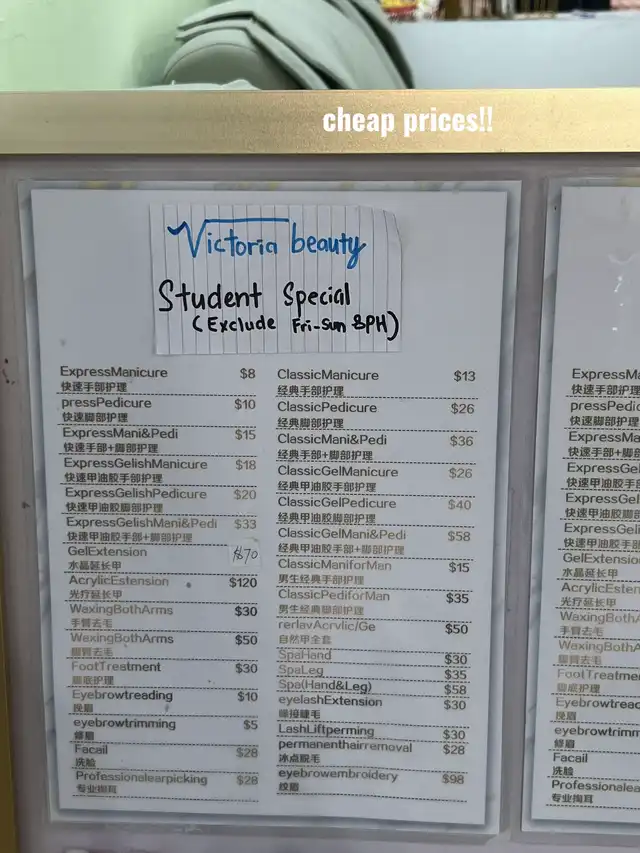 cheap prices!!
Victoria beauty
Student Special
(Exclude Fri-Sun &PH)
ExpressManicure $8
快速手部护理
pressPedicure $10
快速脚部护理
ExpressMani&Pedi $15
快速手部+脚部护理
ExpressGelishManicure $18
快速甲油胶手部护理
ExpressGelishPedicure $20
快速甲油胶脚部护理
ExpressGelishMani&Pedi $33
快速甲油胶手部+脚部护理
GelExtension $70
水晶延长甲
AcrylicEstension $120
光疗延长甲
WaxingBothArms $30
手臂去毛
WaxingBothArms $50
脚臂去毛
FootTreatment $30
脚底护理
Eyebrowtreading $10
挽眉
eyebrowtrimming $5
修眉
Facail $28
洗脸
Professionalearpicking $28
专业掏耳
ClassicManicure $13
经典手部护理
ClassicPedicure $26
经典脚部护理
ClassicMani&Pedi $36
经典手部+脚部护理
ClassicGelManicure $26
经典甲油胶手部护理
ClassicGelPedicure $40
经典甲油胶脚部护理
ClassicGelMani&Pedi $58
经典甲油胶手部+脚部护理
ClassicManiforMan $15
男生经典手部护理
ClassicPediforMan $35
男生经典脚部护理
rerlavAcrvlic/Ge $50
自然甲全套
SpaHand $30
SpaLeg $35
Spa(Hand&Leg) $58
eyelashExtension $30
嫁接睫毛
LashLiftperming $30
permanenthairremoval $28
冰点脱毛
eyebrowembroidery $98
纹眉
ExpressMa
快速手部护理
pressPedic
快速脚部护理
ExpressMa
快速手部+脚
ExpressGel
快速甲油胶手
ExpressGel
快速甲油胶脚
ExpressGeli
快速甲油胶手
GelExtension
水晶延长甲
AcrylicEsten
光疗延长甲
WaxingBothA
手臂去毛
WaxingBothA
脚臂去毛
FootTreatmen
脚底护理
Eyebrowtreac
挽眉
eyebrowtrimm
修眉
Facail
洗脸
Professionalea
专业掏耳